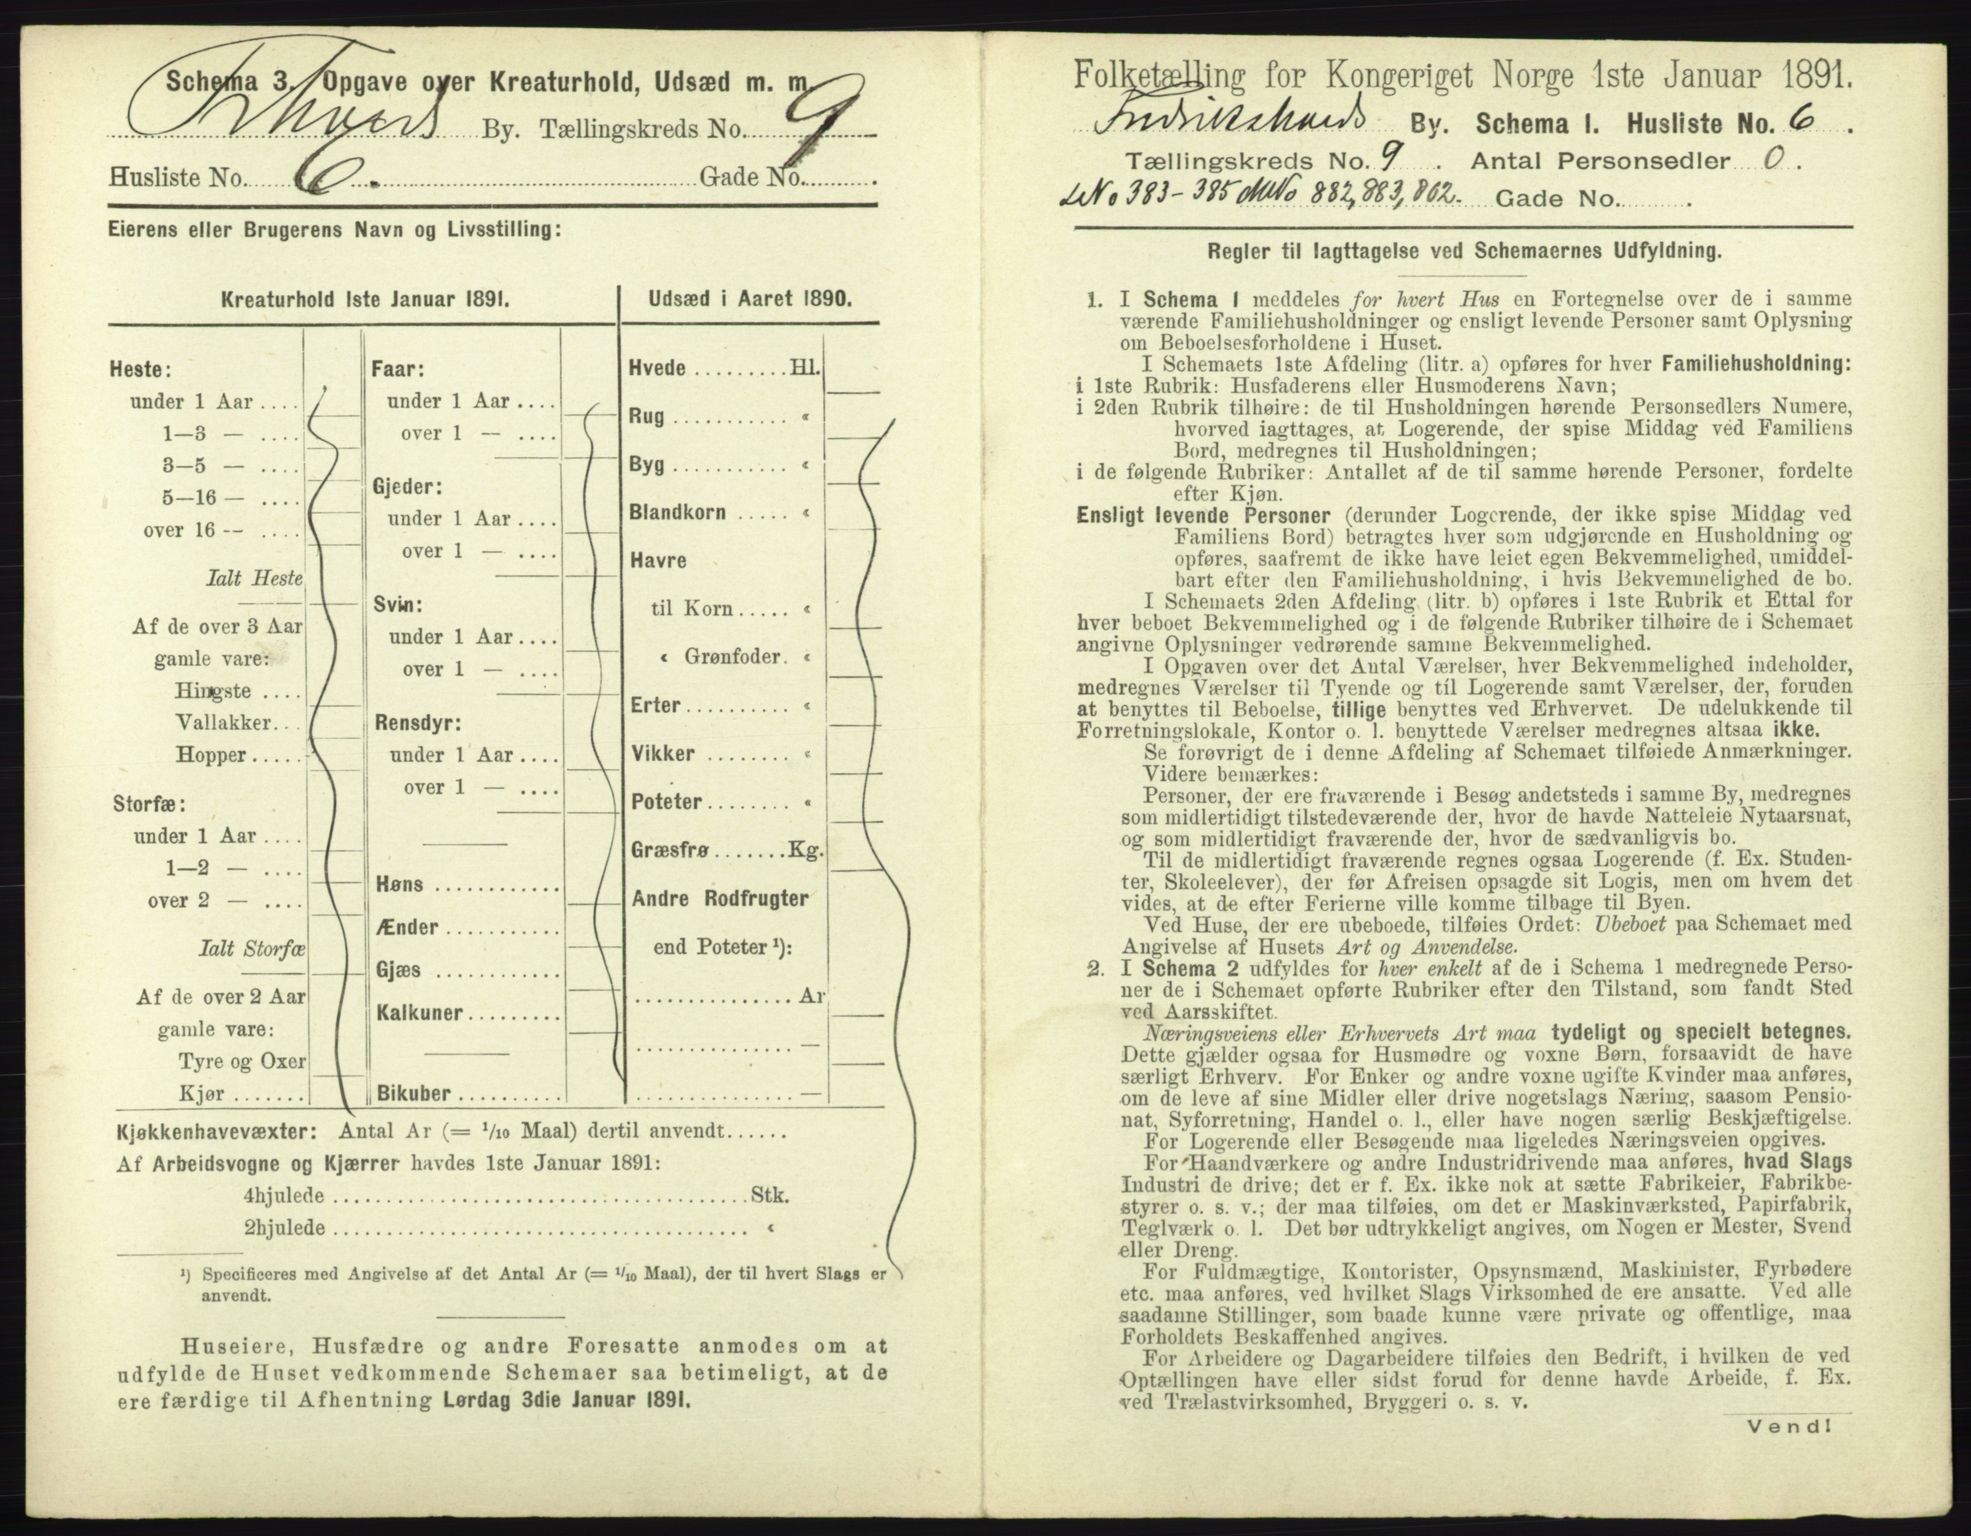 Schema 3. Opgave over Kreaturhold, Udsæd m. m.
Frhvard By. Tællingskreds No. 9
Husliste No. 6. Gade No. .
Eierens eller Brugerens Navn og Livsstilling:
Kreaturhold 1ste Januar 1891.
Heste:
under 1 Aar ....
1—3 — ....
3—5 — ....
5—16 — ....
over 16 -- ....
Ialt Heste
Af de over 3 Aar
gamle vare:
Hingste ....
Vallakker...
Hopper .....
Storfæ:
under 1 Aar ....
1—2 — ....
over 2 — ....
Ialt Storfæ
Af de over 2 Aar
gamle vare:
Tyre og Oxer
Kjør .......
Faar:
under 1 Aar ....
over 1 — ....
Gjeder:
under 1 Aar ....
over 1 — ....
Svin:
under 1 Aar ....
over 1 — ....
Rensdyr:
under 1 Aar ....
over 1 — ....
Høns ............
Ænder ...........
Gjæs ............
Kalkuner.........
Bikuber ..........
Udsæd i Aaret 1890.
Hvede ......... Hl.
Rug ........... «
Byg ............ «
Blandkorn ..... «
Havre
til Korn ..... «
« Grønfoder. «
Erter .......... «
Vikker ........ «
Poteter........ «
Græsfrø ....... Kg.
Andre Rodfrugter
end Poteter ¹):
............... Ar
............... —
............... —
Kjøkkenhavevæxter: Antal Ar (= 1/10 Maal) dertil anvendt......
Af Arbeidsvogne og Kjærrer havdes 1ste Januar 1891:
4hjulede ........................................ Stk.
2hjulede ........................................ «
¹) Specificeres med Angivelse af det Antal Ar (= 1/10 Maal), der til hvert Slags er
anvendt.
Huseiere, Husfædre og andre Foresatte anmodes om at
udfylde de Huset vedkommende Schemaer saa betimeligt, at de
ere færdige til Afhentning Lørdag 3die Januar 1891.
Folketælling for Kongeriget Norge 1ste Januar 1891.
Fredrikshalds By. Schema 1. Husliste No. 6 .
Tællingskreds No. 9 . Antal Personsedler 0 .
LNo 383-385 MNo 882, 883, 802. Gade No. .
Regler til Iagttagelse ved Schemaernes Udfyldning.
1. I Schema 1 meddeles for hvert Hus en Fortegnelse over de i samme
værende Familiehusholdninger og ensligt levende Personer samt Oplysning
om Beboelsesforholdene i Huset.
I Schemaets 1ste Afdeling (litr. a) opføres for hver Familiehusholdning:
i 1ste Rubrik: Husfaderens eller Husmoderens Navn;
i 2den Rubrik tilhøire: de til Husholdningen hørende Personsedlers Numere,
hvorved iagttages, at Logerende, der spise Middag ved Familiens
Bord, medregnes til Husholdningen;
i de følgende Rubriker: Antallet af de til samme hørende Personer, fordelte
efter Kjøn.
Ensligt levende Personer (derunder Logerende, der ikke spise Middag ved
Familiens Bord) betragtes hver som udgjørende en Husholdning og
opføres, saafremt de ikke have leiet egen Bekvemmelighed, umiddel-
bart efter den Familiehusholdning, i hvis Bekvemmelighed de bo.
I Schemaets 2den Afdeling (litr. b) opføres i 1ste Rubrik et Ettal for
hver beboet Bekvemmelighed og i de følgende Rubriker tilhøire de i Schemaet
angivne Oplysninger vedrørende samme Bekvemmelighed.
I Opgaven over det Antal Værelser, hver Bekvemmelighed indeholder,
medregnes Værelser til Tyende og til Logerende samt Værelser, der, foruden
at benyttes til Beboelse, tillige benyttes ved Erhvervet. De udelukkende til
Forretningslokale, Kontor o. l. benyttede Værelser medregnes altsaa ikke.
Se forøvrigt de i denne Afdeling af Schemaet tilføiede Anmærkninger.
Videre bemærkes:
Personer, der ere fraværende i Besøg andetsteds i samme By, medregnes
som midlertidigt tilstedeværende der, hvor de havde Natteleie Nytaarsnat,
og som midlertidigt fraværende der, hvor de sædvanligvis bo.
Til de midlertidigt fraværende regnes ogsaa Logerende (f. Ex. Studen-
ter, Skoleelever), der før Afreisen opsagde sit Logis, men om hvem det
vides, at de efter Ferierne ville komme tilbage til Byen.
Ved Huse, der ere ubeboede, tilføies Ordet: Ubeboet paa Schemaet med
Angivelse af Husets Art og Anvendelse.
2. I Schema 2 udfyldes for hver enkelt af de i Schema 1 medregnede Perso-
ner de i Schemaet opførte Rubriker efter den Tilstand, som fandt Sted
ved Aarsskiftet.
Næringsveiens eller Erhvervets Art maa tydeligt og specielt betegnes.
Dette gjælder ogsaa for Husmødre og voxne Børn, forsaavidt de have
særligt Erhverv. For Enker og andre voxne ugifte Kvinder maa anføres,
om de leve af sine Midler eller drive nogetslags Næring, saasom Pensio-
nat, Syforretning, Handel o. l., eller have nogen særlig Beskjæftigelse.
For Logerende eller Besøgende maa ligeledes Næringsveien opgives.
For Haandværkere og andre Industridrivende maa anføres, hvad Slags
Industri de drive; det er f. Ex. ikke nok at sætte Fabrikeier, Fabrikbe-
styrer o. s. v.; der maa tilføies, om det er Maskinværksted, Papirfabrik,
Teglværk o. l. Det bør udtrykkeligt angives, om Nogen er Mester, Svend
eller Dreng.
For Fuldmægtige, Kontorister, Opsynsmænd, Maskinister, Fyrbødere
etc. maa anføres, ved hvilket Slags Virksomhed de ere ansatte. Ved alle
saadanne Stillinger, som baade kunne være private og offentlige, maa
Forholdets Beskaffenhed angives.
For Arbeidere og Dagarbeidere tilføies den Bedrift, i hvilken de ved
Optællingen have eller sidst forud for denne havde Arbeide, f. Ex.
ved Trælastvirksomhed, Bryggeri o. s. v.
Vend!